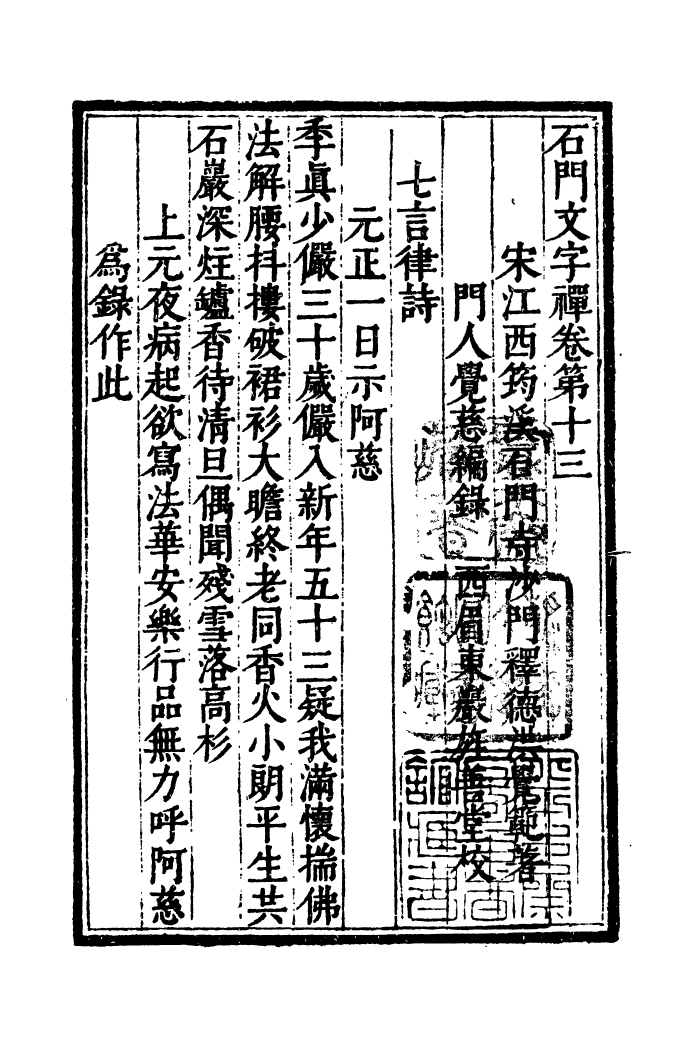 石門文字禪卷第十三
宋江西筠溪石門寺沙門釋德洪覺範著
門人覺慈編錄　西眉東巖旌善堂校
七言律詩
元正一日示阿慈
季眞少儼三十歲儼入新年五十三疑我滿懷揣佛
法解腰抖擻破裙衫大瞻終老同香火小朗平生共
石巖深炷鑪香待清旦偶聞殘雪落高杉
上元夜病起欲寫法華安樂行品無力呼阿慈
爲錄作此